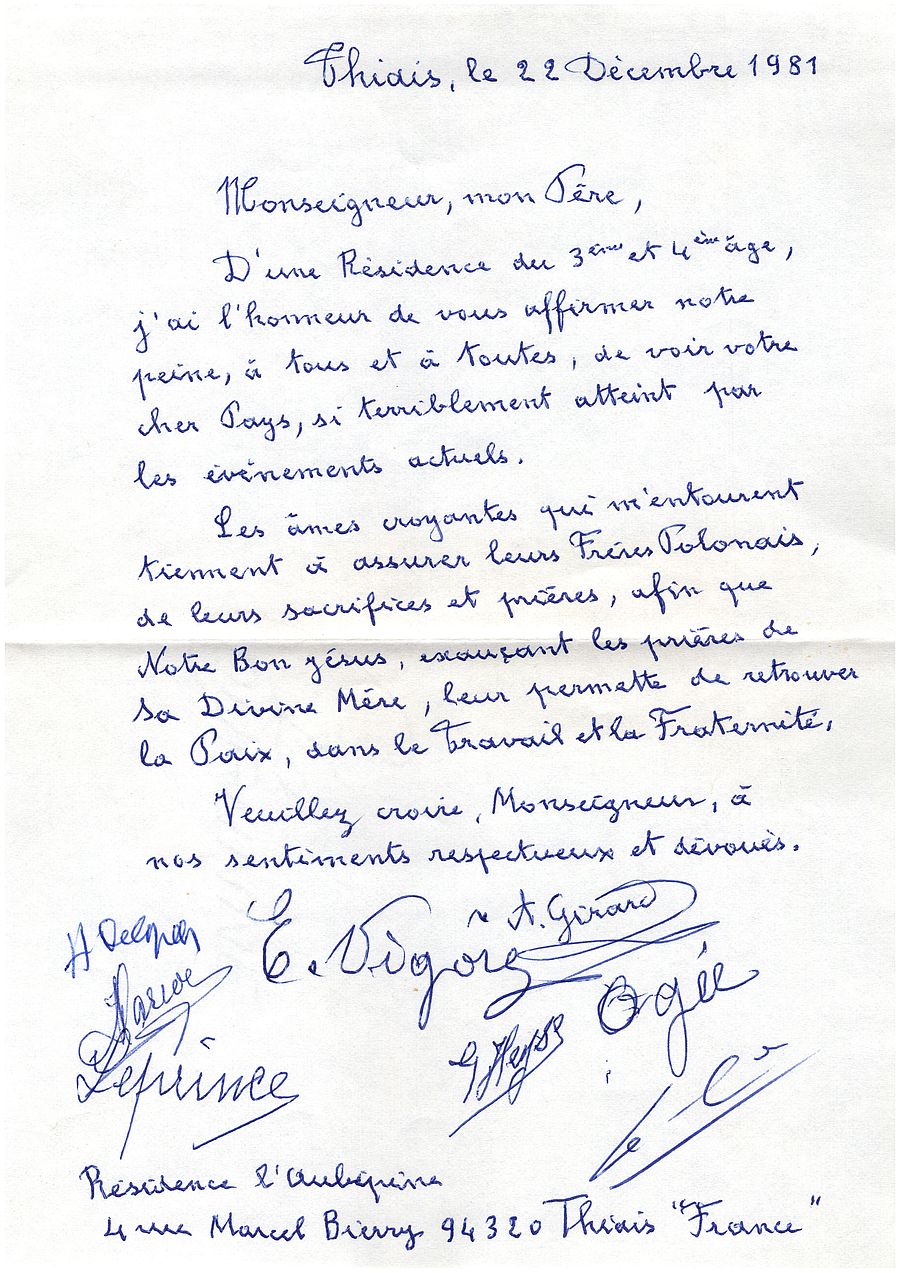 Thiais, le 22 Décembre 1981
Monseigneur, mon Père,
D'une Résidence du 3ème et 4ème âge,
j'ai l'honneur de vous affirmer notre
peine, à tous et à toutes, de voir votre
cher Pays, si terriblement atteint par
les événements actuels.
Les âmes croyantes qui m'entourent
tiennent à assurer leurs Frères Polonais,
de leurs sacrifices et prières, afin que
Notre Bon Jésus, exauçant les prières de
Sa Divine Mère, leur permette de retrouver
la Paix, dans le Travail et la Fraternité.
Veuillez croire, Monseigneur, à
nos sentiments respectueux et dévoués.
A. Girard
E. Vigory
Ogée
Leprince
Résidence l'Aubépine
4 rue Marcel Bierry 94320 Thiais "France"